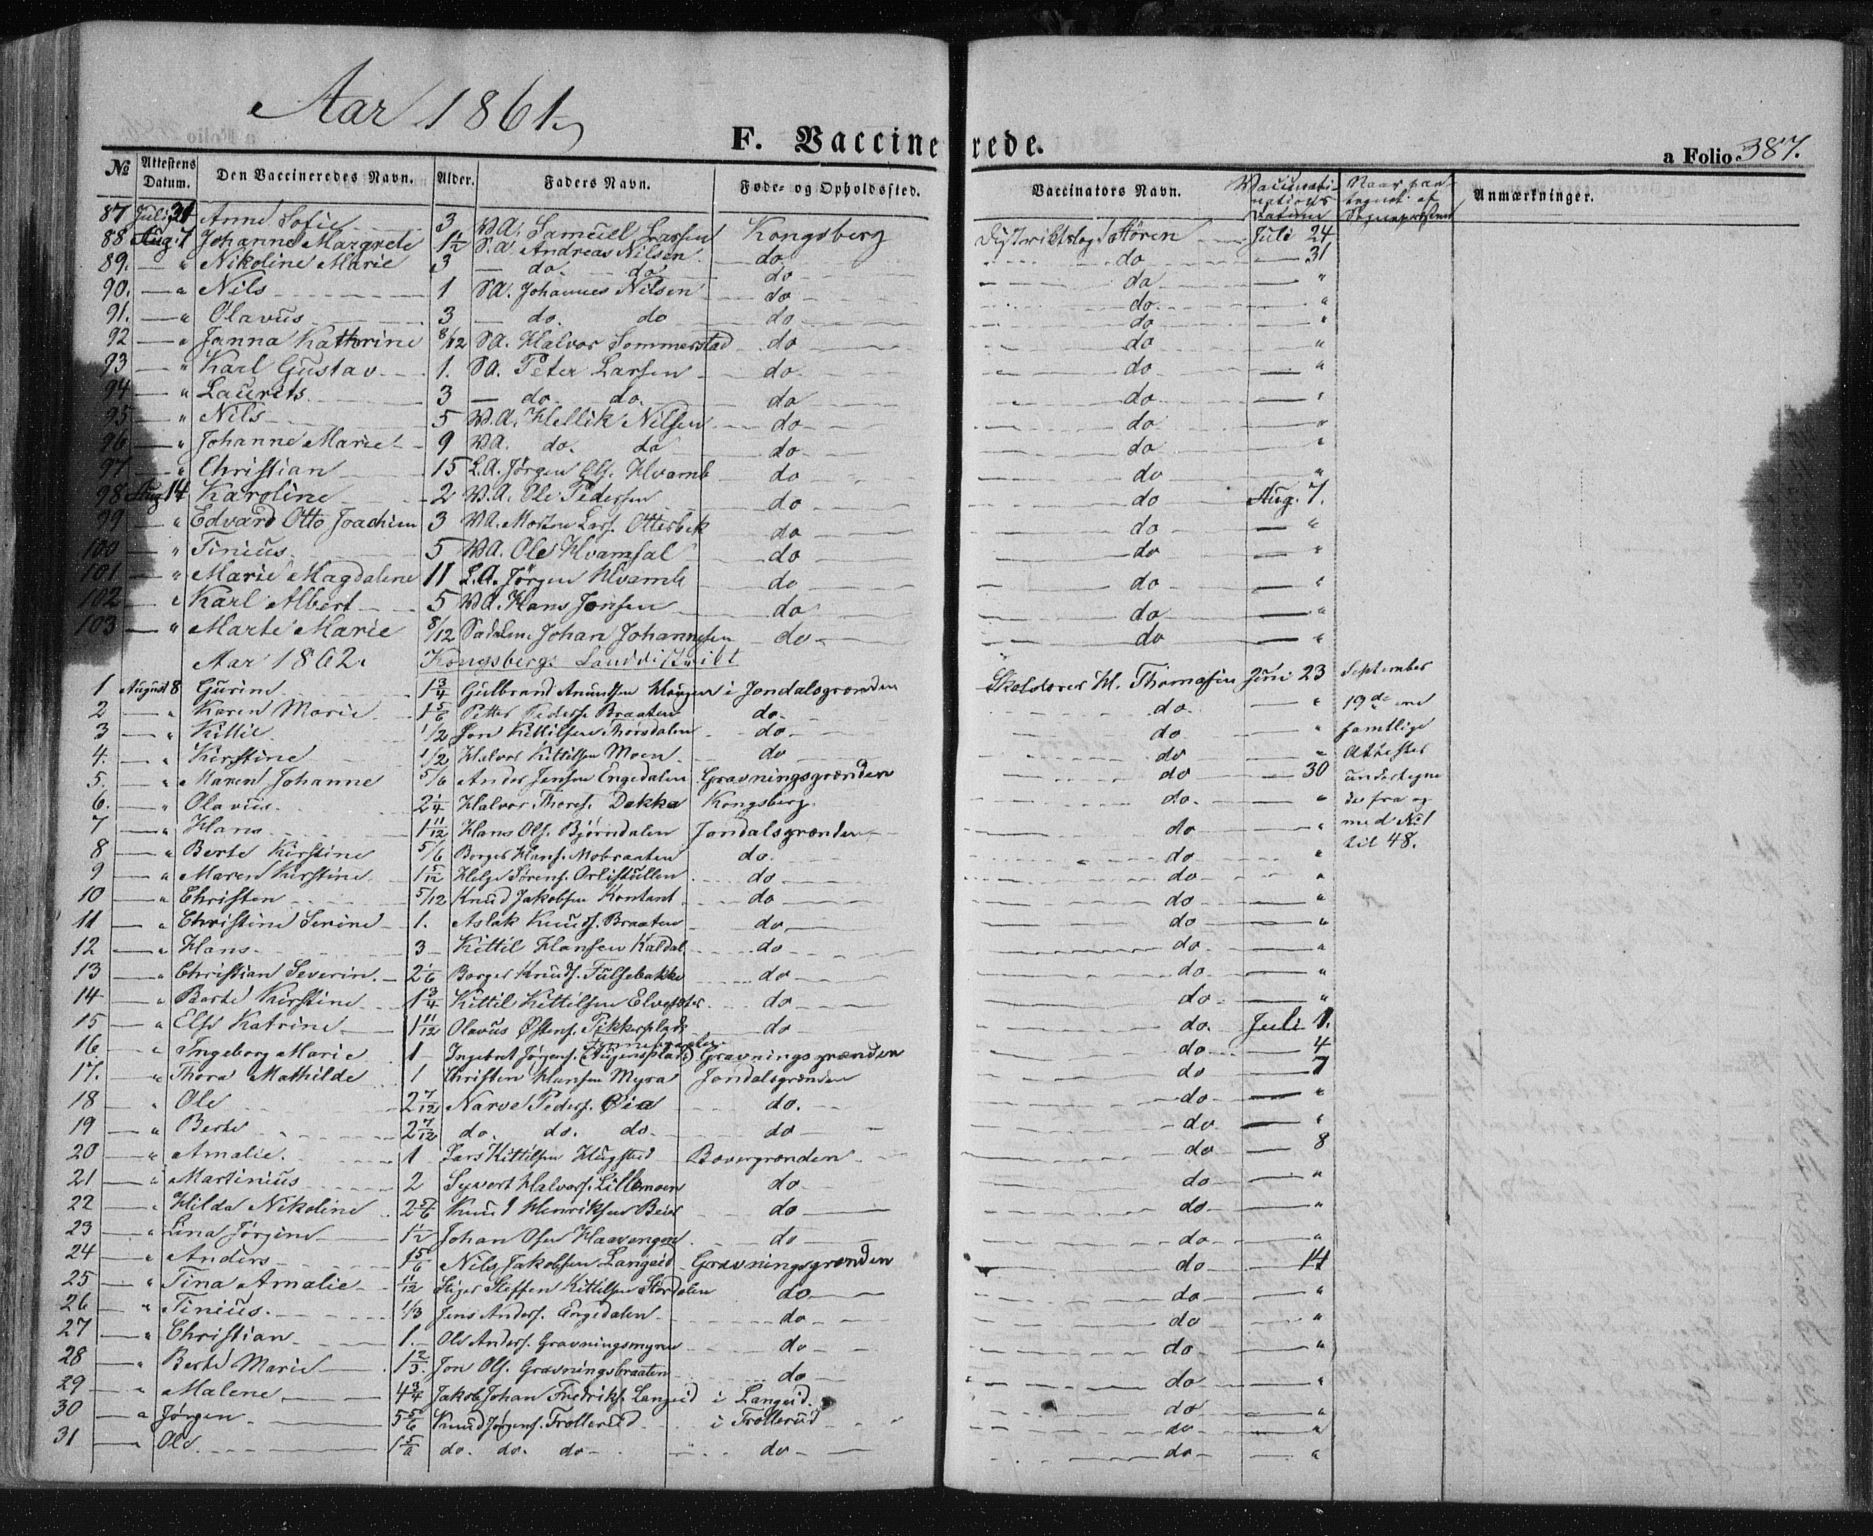 Aar 1861
F. Vaccinerede. a Folio 387.
No Attestens Datum. Den Vaccineredes Navn. Alder. Faders Navn. Føde- og Opholdssted. Vaccinators Navn. Vaccinationens Datum Naar paategnet af Sognepræsten Anmærkninger.
87 Juli 31 Anne Sofie 3 Samuel Larsen Kongsberg Støren Juli 24
88 Aug. 7 Johanne Margrete 1½ Andreas Nilsen do do — 31
89. — " Nikoline Marie 3 — do. do do do "
90. — " Nils 1 SA. Johannes Nilsen do do. "
91. — " Olavus 3 — do. do do do "
92 — " Janna Kathrine 8/12 SA. Halvor Sommerstad do do "
93 — " Karl Gustav 1. SA. Peter Larsen do. do — "
94 — " Laurits 3 — do do. do do — "
95 — " Nils 5 Hellik Nilsen do do "
96 — " Johanne Marie 9 do. do do. do "
97 — " Christian 15 L.A. Jørgen Ols. Hvamb do do "
98 Aug 14 Karoline 2 Ole Pedersen do do Aug. 7.
99 — " Edvard Otto Joachim 3 Morten Lars. Otterbek do do — "
100 — " Tinius 5 Ole Hvamsal do do — "
101 — " Marie Magdalene 11 L.A. Jørgen Hvamb do do — "
102 — " Karl Albert 5 Hans Jonsen do do — "
103 — " Marte Marie 8/12 Johan Johannesen do do — "
Aar 1862. Kongsbergs Landdistrikt
1 August 8 Gurine 1¾ Gulbrand Amundsen Haugen i Jondalsgrænden Skolelærer H. Thomasen Juni 23 September
2 — " Karen Marie 1 5/6 Petter Peders. Braaten do. do. " 19de ere
3 — " Kittil 1/2 Jon Kittilsen Thorsdalen do. do " samtlige
4. — " Kirstine 1/2 Halvor Kittilsen Moen do do " Attester
5. — " Maren Johanne 5/6 Anders Jensen Engedalen Gravningsgrænden do — 30 undertegne
6. — " Olavus 2¼ Halvor Thores. Dokka Kongsberg do. — " des fra og
7 — " Hans 1 11/12 Hans Ols. Bjørndalen Jondalsgrænden do — " med No 1
8 — " Berte Kirstine 5/6 Borger Hans. Mobraaten do. do — " til 48.
9 — " Maren Kirstine 1 5/12 Helge Sørens. do do — "
10 — " Christen 5/12 Knud Jakobsen Kontant do do — "
11 — " Christine Serine 1. Aslak Knuds. Braaten do do — "
12 — " Hans 3 Kittil Hansen Kaldal do do — "
13 — " Christian Severin 2 1/6 Borger Knuds. Fulsebakke do do — "
14 — " Berte Kirstine 1¾ Kittil Kittilsen do do — "
15 — " Else Katrine 1 11/12 Olavus Østens. Pikkerplads do do. Juli 1.
16 — " Ingeborg Marie 1 Ingebret Jørgens. Gravningsgrænden do — 4
17. — " Thora Mathilde 1 Christen Hansen Myra Jondalsgrænden do — 7
18 — " Ole 2 7/12 Narve Peders. Øia do. do — "
19 — " Berte 2 7/12 do. do. do. do do — "
20 — " Amalie 1 Lars Kittilsen Hugsted Bævergrænden do — 8
21 — " Martinius 2 Syvert Halvors. Lillemoen do do — "
22 — " Hilda Nikoline Knud Henriksen do do — "
23 — " Lina Jørgine 1½ Johan Olsen Haavengen do do — "
24 — " Anders 1 5/6 Nils Jakobsen Langeid Gravningsgrænden do — 14
25 — " Tina Amalie 1/12 Steffen Kittilsen Stordalen do do — "
26 — " Tinius 1/3 Jens Anders. Engedalen do do — "
27 — " Christian 1. Ole Anders. Gravningsmyra do do — "
28 — " Berte Marie 1 2/3 Jon Ols. Gravningsbraaten do do — "
29 — " Malene 4¾ Jakob Johan Fredriks. Langeid i Langeid. do — "
30 — " Jørgen 5 5/6 Knud Jørgens. Trollerud i Trollerud do — "
31 — " Ole do. do. do do do — "